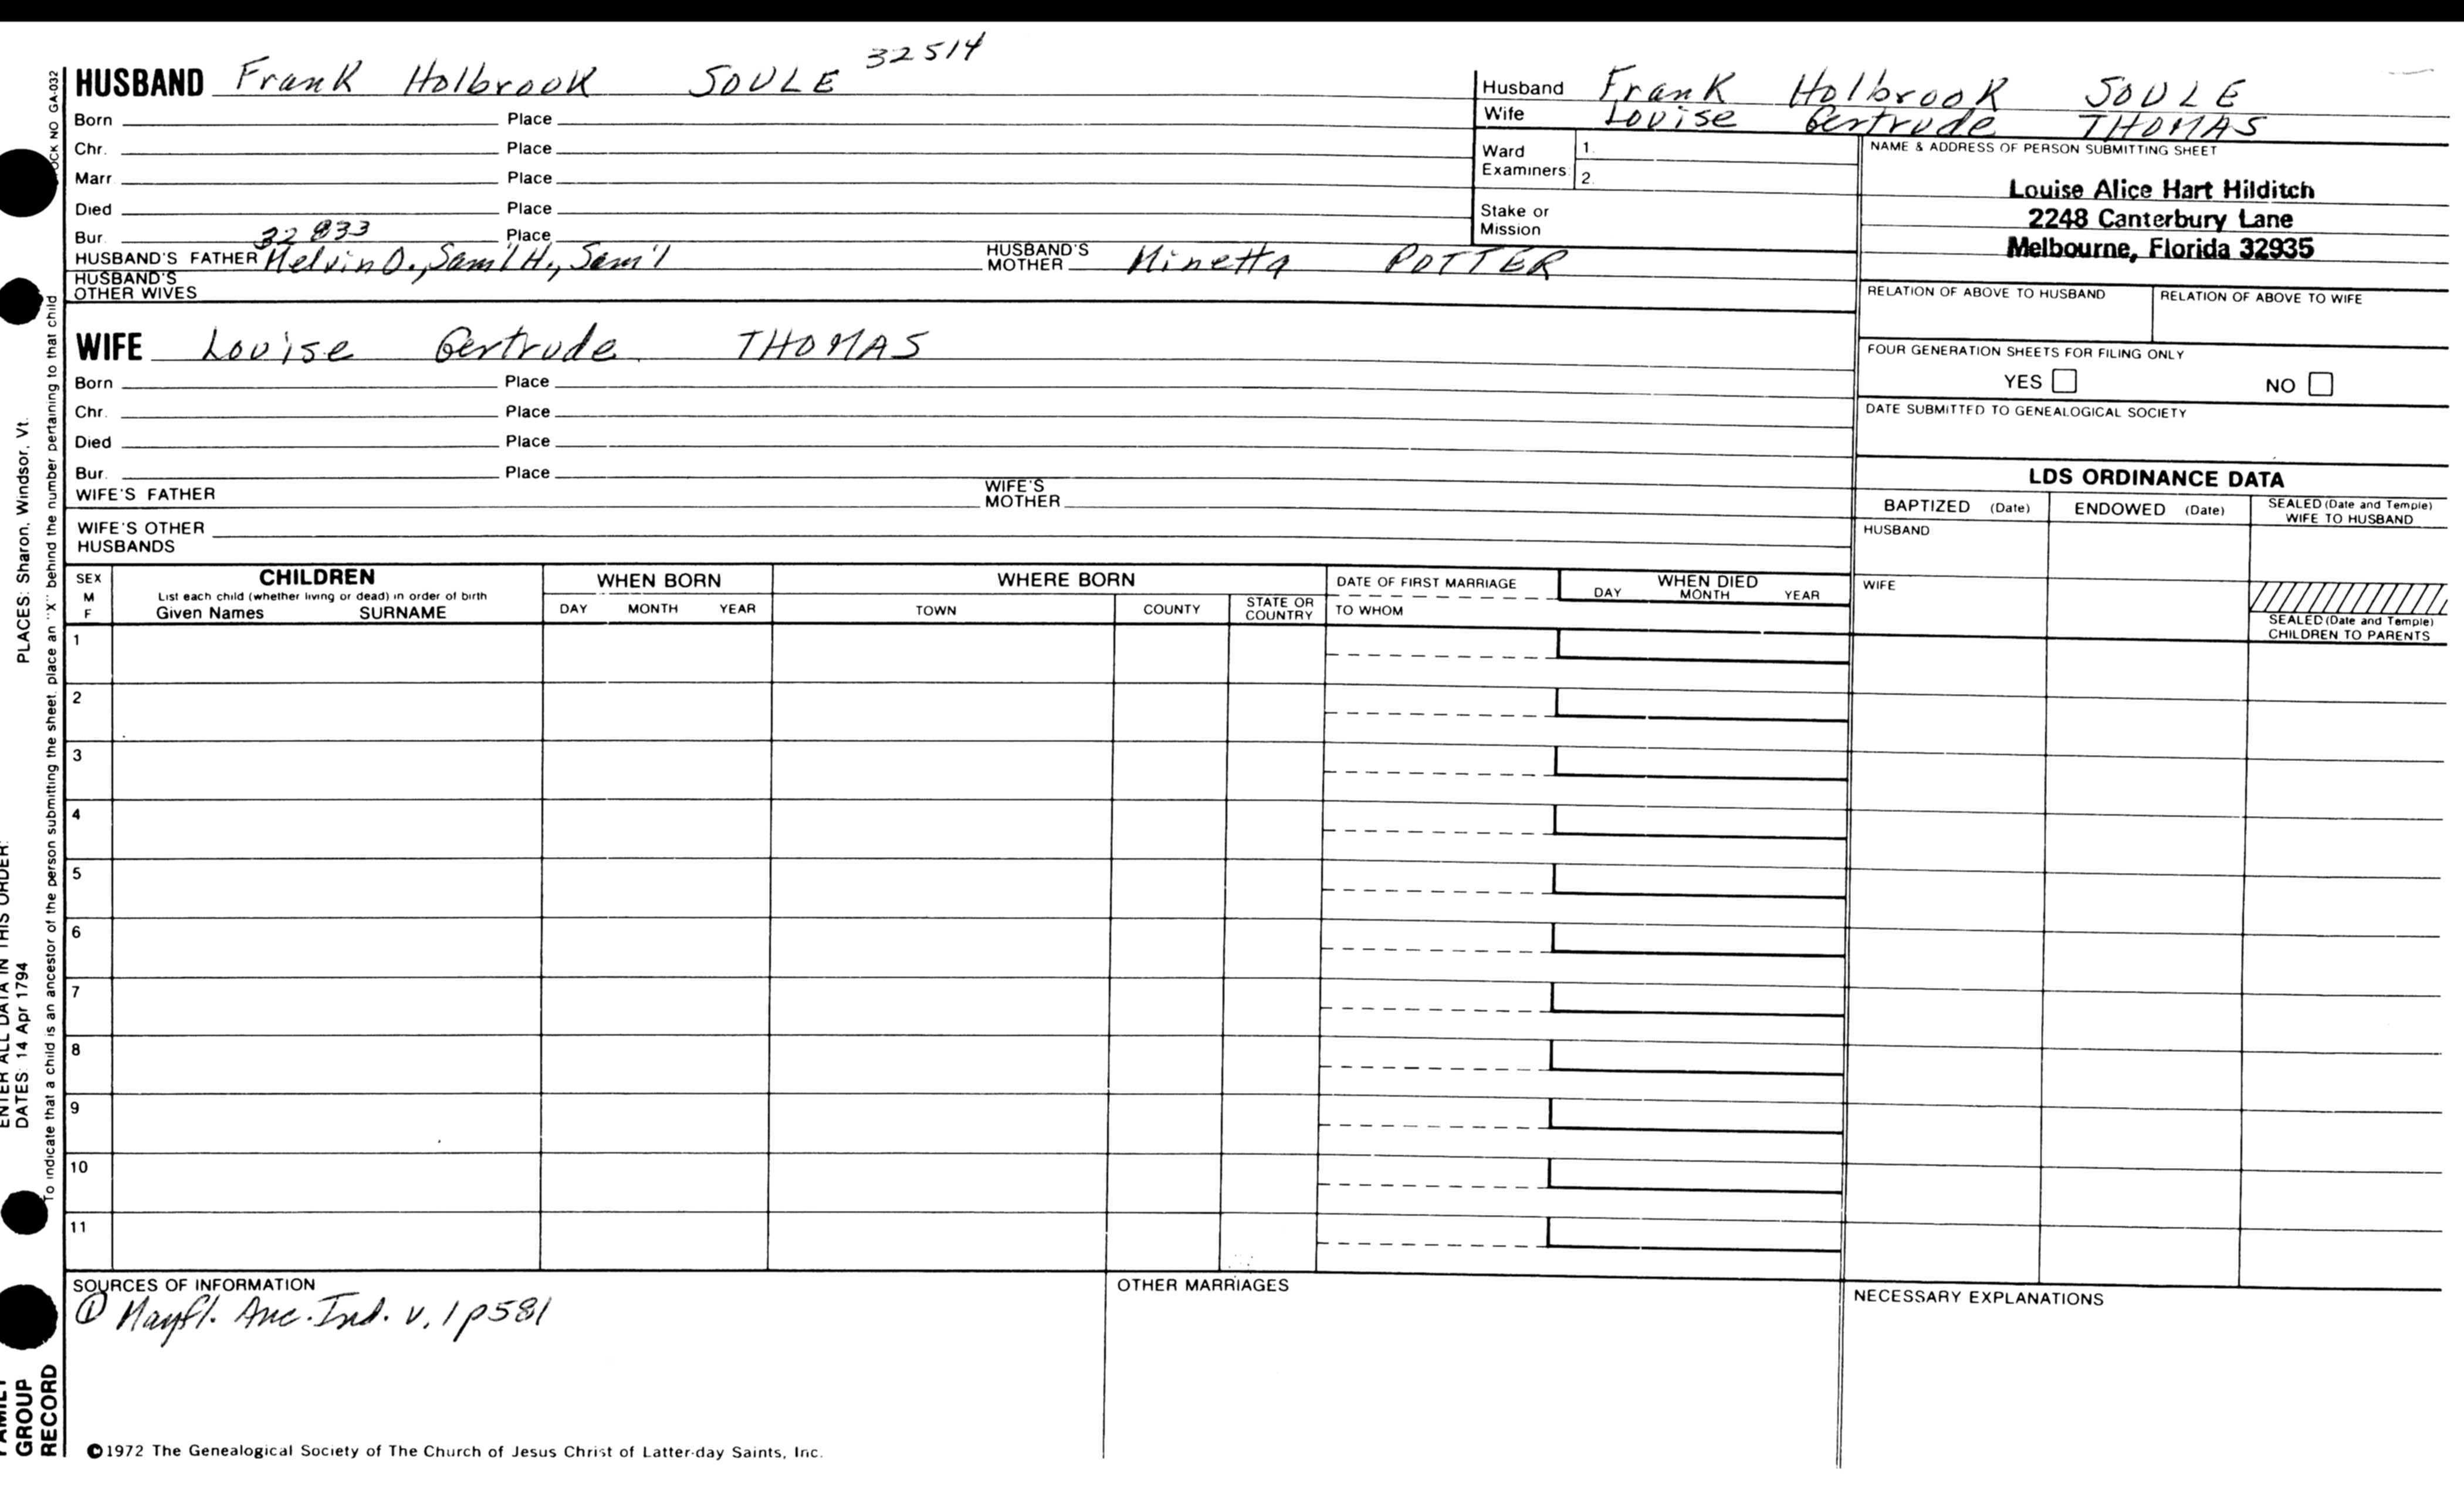 HUSBAND Frank Holbrook SOULE 32514
Born Place
Chr. Place
Marr Place
Died Place
Bur. Place
32833
HUSBAND'S FATHER Melvin D., Sam'l H., Sam'l HUSBAND'S MOTHER Minetta POTTER
HUSBAND'S OTHER WIVES
WIFE Louise Gertrude THOMAS
Born Place
Chr. Place
Died Place
Bur. Place
WIFE'S FATHER WIFE'S MOTHER
WIFE'S OTHER HUSBANDS
Husband Frank Holbrook SOULE
Wife Louise Gertrude THOMAS
Ward Examiners 1.
2.
Stake or Mission
NAME & ADDRESS OF PERSON SUBMITTING SHEET
Louise Alice Hart Hilditch
2248 Canterbury Lane
Melbourne, Florida 32935
RELATION OF ABOVE TO HUSBAND RELATION OF ABOVE TO WIFE
FOUR GENERATION SHEETS FOR FILING ONLY
YES NO
DATE SUBMITTED TO GENEALOGICAL SOCIETY
LDS ORDINANCE DATA
BAPTIZED (Date) ENDOWED (Date) SEALED (Date and Temple) WIFE TO HUSBAND
HUSBAND
WIFE
SEALED (Date and Temple) CHILDREN TO PARENTS
SEX M F
CHILDREN
List each child (whether living or dead) in order of birth
Given Names SURNAME
WHEN BORN
DAY MONTH YEAR
WHERE BORN
TOWN COUNTY STATE OR COUNTRY
DATE OF FIRST MARRIAGE
TO WHOM
WHEN DIED
DAY MONTH YEAR
1
2
3
4
5
6
7
8
9
10
11
SOURCES OF INFORMATION
① Mayfl. Anc. Ind. v. 1 p581
OTHER MARRIAGES
NECESSARY EXPLANATIONS
©1972 The Genealogical Society of The Church of Jesus Christ of Latter-day Saints, Inc.
OCK NO GA-032
To indicate that a child is an ancestor of the person submitting the sheet, place an "X" behind the number pertaining to that child
PLACES: Sharon, Windsor, Vt.
ENTER ALL DATA IN THIS ORDER:
DATES: 14 Apr 1794
FAMILY
GROUP
RECORD